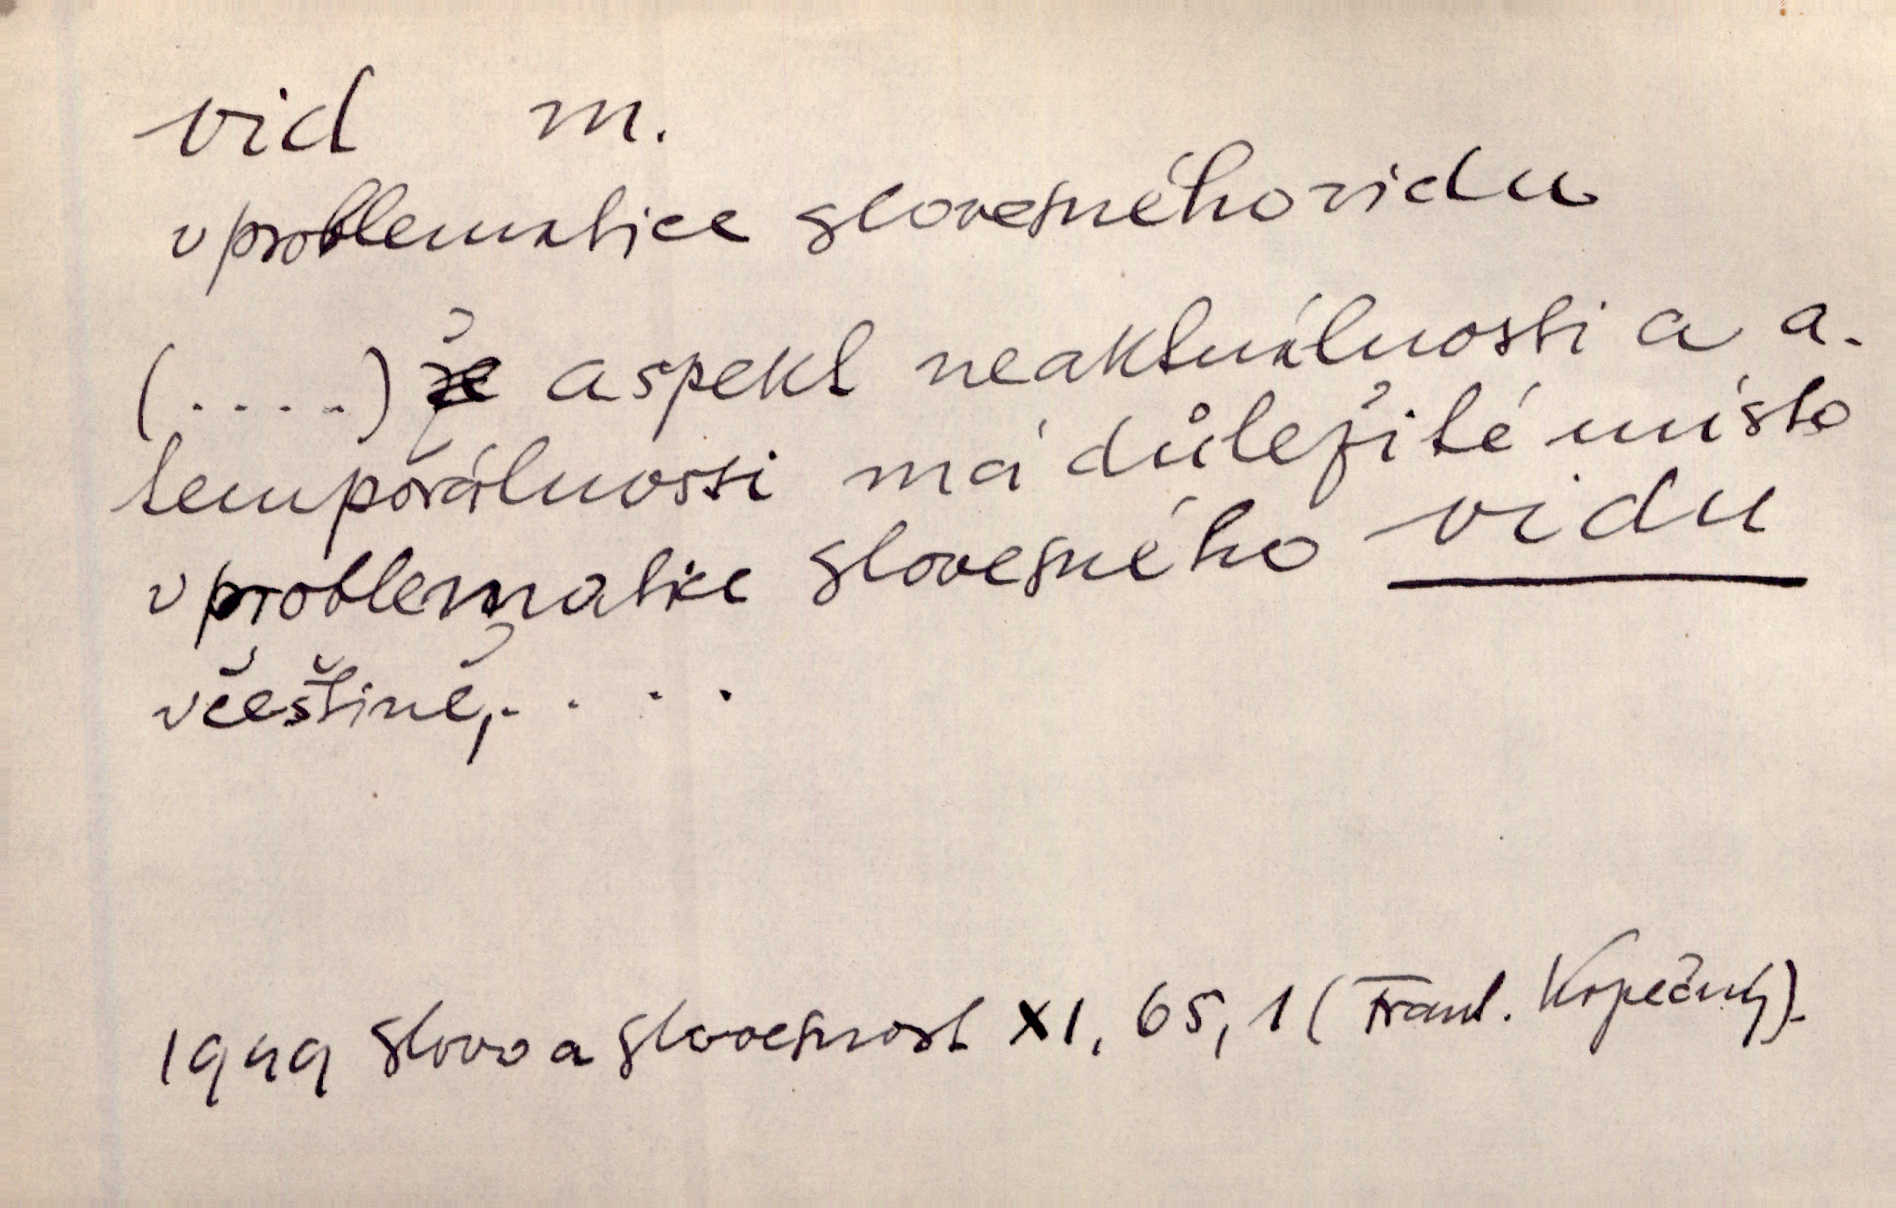 vid m.
v problematice slovesného vidu
(....) že aspekt neaktuálnosti a a-
temporálnosti má důležité místo
v problematice slovesného vidu
v češtině, . . . .
1949 Slovo a slovesnost XI, 65, 1 (Frant. Kopečný).